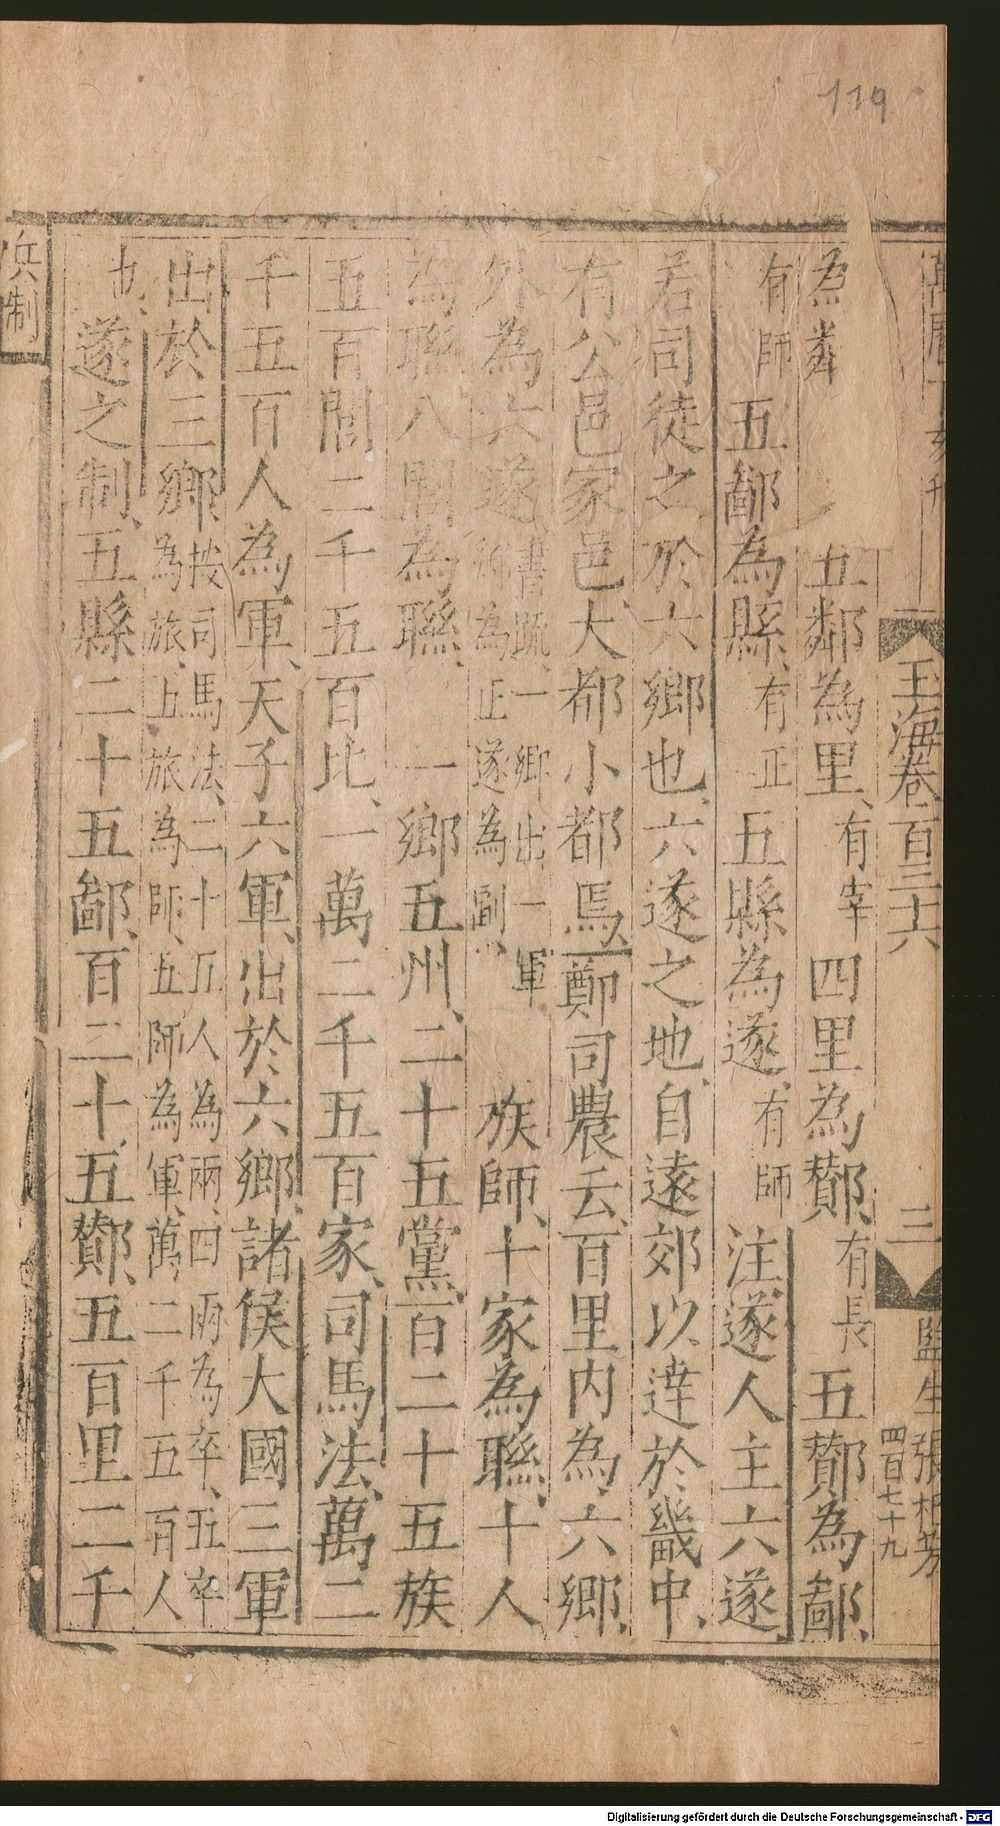 119
萬曆丁亥刊 玉海卷一百三十六 三 監生張 四百七十九
為鄰 五鄰為里、有宰 四里為酇、有長 五酇為鄙、
有師 五鄙為縣、有正 五縣為遂、有師 注遂人主六遂、
若司徒之於六鄉也、六遂之地、自遠郊以達於畿中、
有公邑家邑、大都小都焉、鄭司農云、百里內為六鄉、
外為六遂、書疏、一鄉出一軍 鄉為正遂為副、 族師、十家為聯、十人
為聯八閭為聯、 一鄉五州、二十五黨、百二十五族
五百閭二千五百比、一萬二千五百家、司馬法、萬二
千五百人為軍、天子六軍、出於六鄉、諸侯大國三軍
出於三鄉、按司馬法、二十五人為兩、四兩為卒、五卒為旅、五旅為師、五師為軍、萬二千五百人
也、遂之制、五縣二十五鄙、百二十五酇、五百里二千
兵制
Digitalisierung gefördert durch die Deutsche Forschungsgemeinschaft - DFG